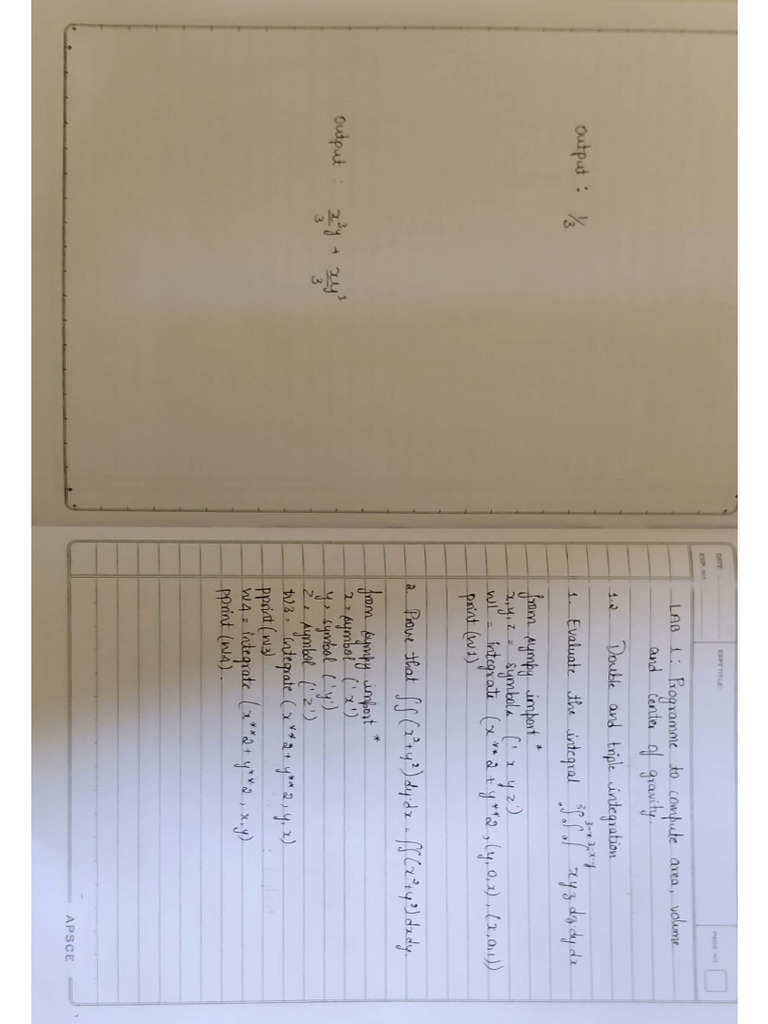 output : 1/3
output : x³y/3 + xy³/3
DATE
EXP. NO.
EXPT TITLE:
PAGE NO.
LAB 1 : Programme to compute area, volume
and center of gravity.
1.2 Double and triple integration
1. Evaluate the integral ∫₀³ ∫₀³⁻ˣ ∫₀³⁻ˣ⁻ʸ xyz dz dy dx
from sympy import *
x, y, z = symbols ('x y z')
w1 = integrate (x**2 + y**2, (y, 0, x), (x, 0, 1))
print (w1)
2. Prove that ∫∫ (x²+y²) dy dx = ∫∫ (x²+y²) dx dy.
from sympy import *
x = symbol ('x')
y = symbol ('y')
z = symbol ('z')
w3 = integrate (x**2 + y**2, y, x)
pprint (w3)
w4 = integrate (x**2 + y**2, x, y)
pprint (w4).
APSCE